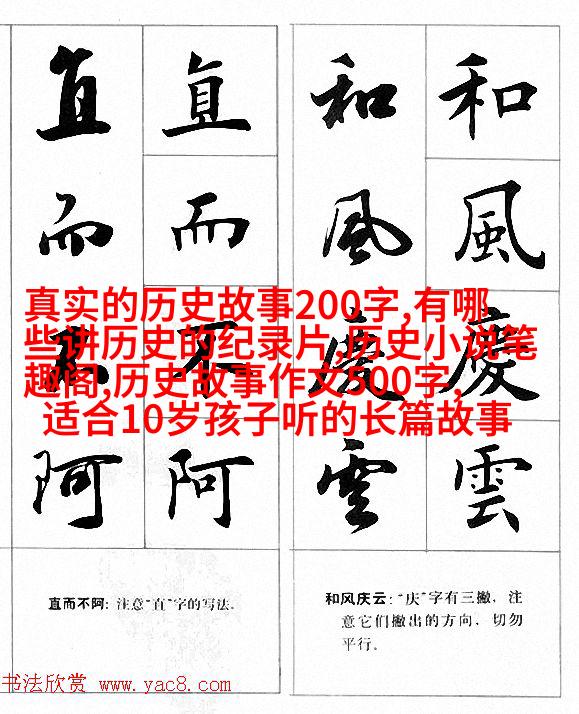 和風慶雲
和風慶雲
直而不阿
直而不阿
真实的历史故事200字,有哪
些讲历史的纪录片,历史小说笔
趣阁,历史故事作文500字,
适合10岁孩子听的长篇故事
直而不阿: 注意“直”字的写法.
和风庆云: “庆”字有三撇, 注
意它们撇出的方向, 切勿
平行。
书法欣赏 www.yac8.com